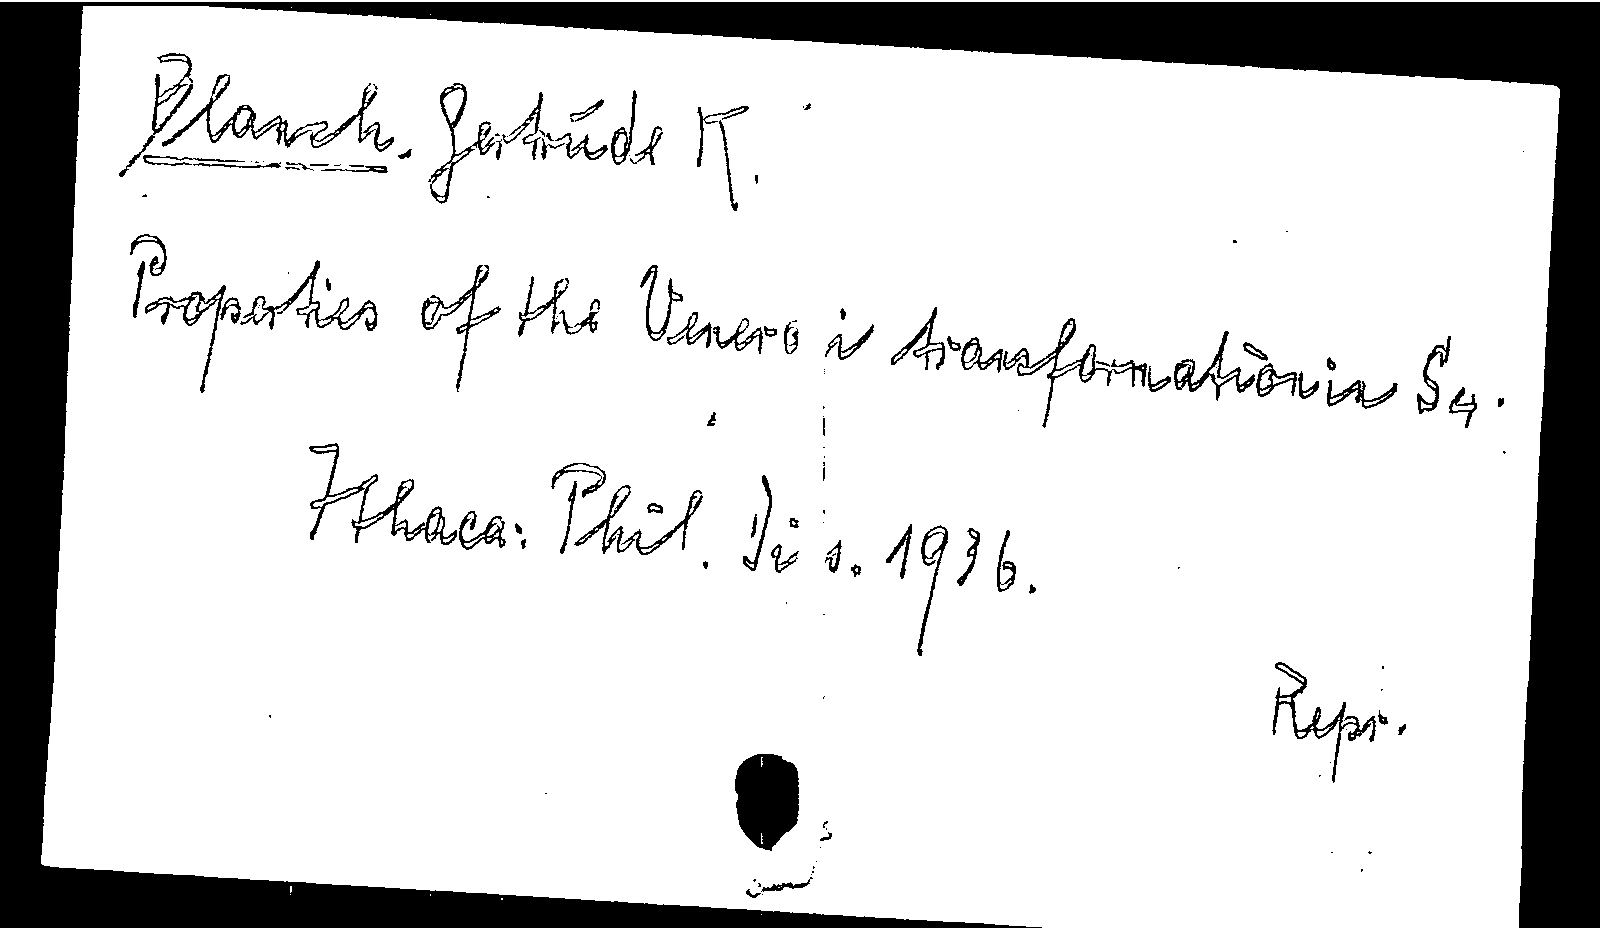 Blanch. Gertrude K.
Properties of the Veneroi transformation in S4.
Ithaca: Phil. Dis. 1936.
Repr.